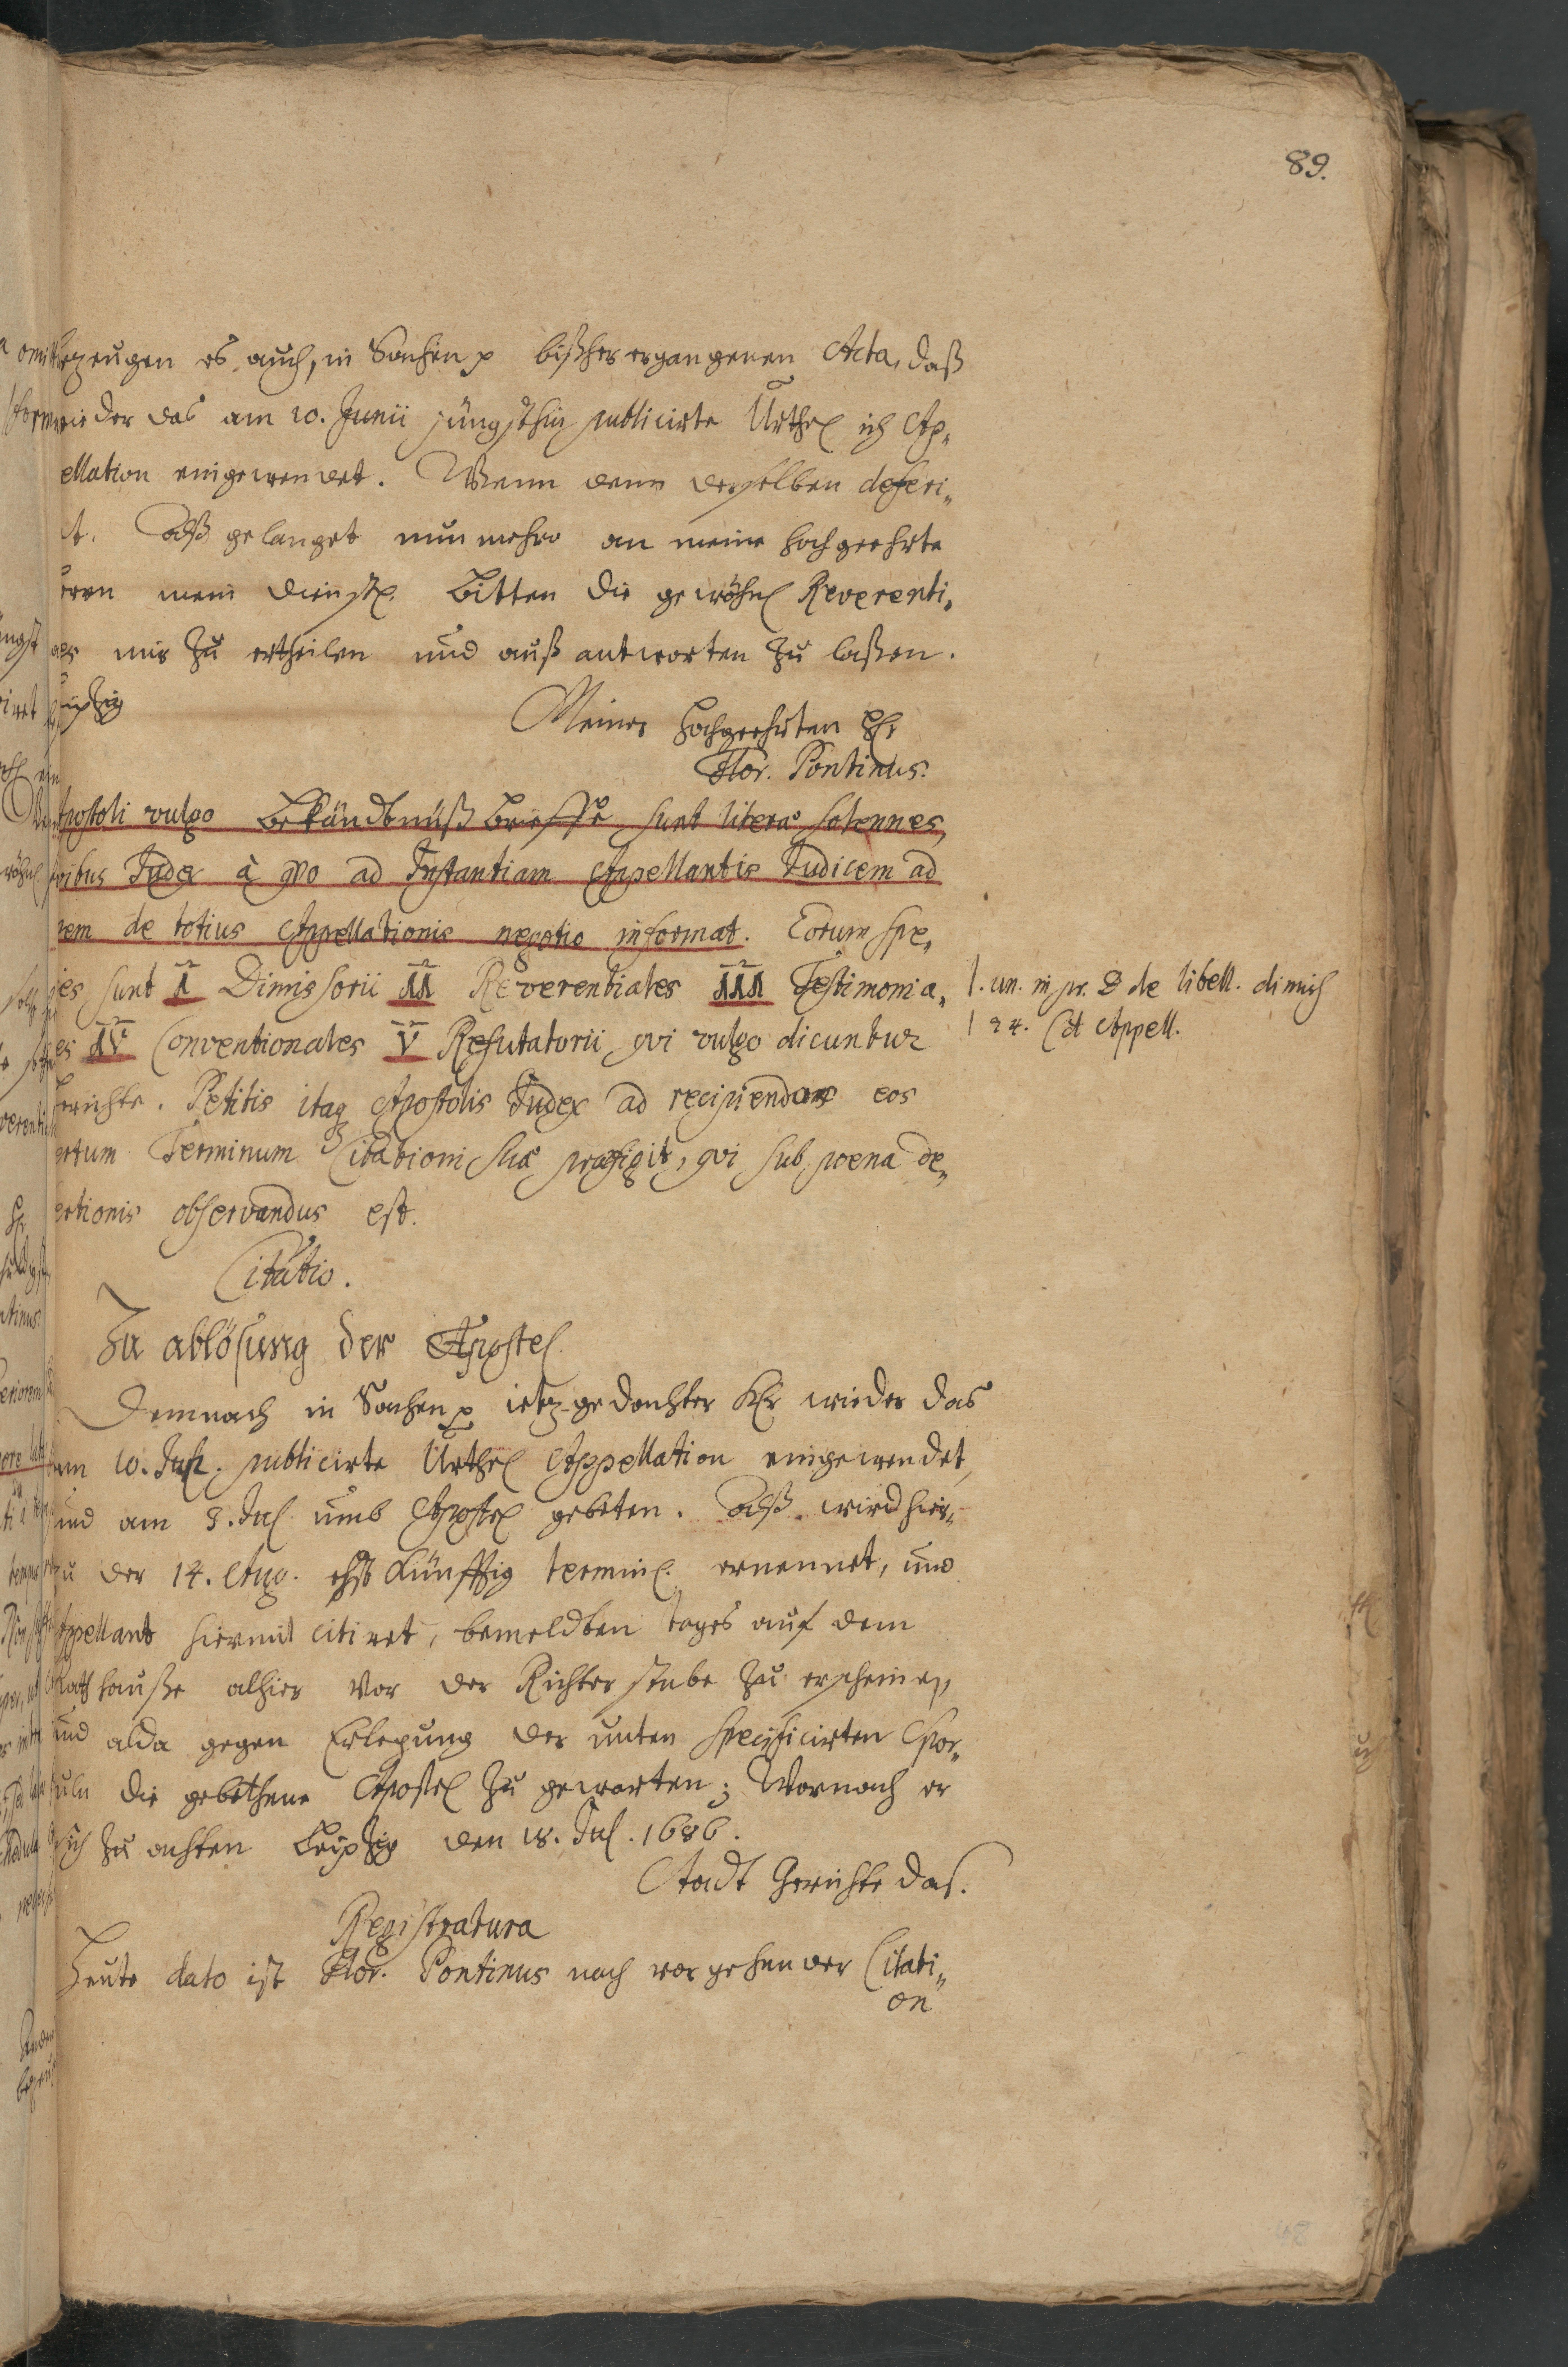 89.
bezeugen es auch, in Sachen p bißher ergangenen Acta, daß
wieder das am 10. Junii jüngsthin publicirte Urthel ich Ap„
ellation eingewendet. Wenn denn derselben deferi„
t. Alß gelanget nunmehro an meine hochgeehrte
rren mein dienstl. Bitten die gewöhnl Reverenti„
ales mir zu ertheilen und auß antworten zu laßen.
Leipzig
Meiner hochgeehrten HH
Flor. Pontinus.
Apostoli vulgo Bekändtnüß Brieffe sunt literæ solennes,
qvibus Judex à qvo ad Instantiam Appellantis Judicem ad
vem de totius Appellationis negotio informat. Eorum spe„
ies sunt I Dimissorii II Reverentiales III Testimonia„
es IV Conventionales V Refutatorii qvi vulgo dicuntur
l. un. in pr. D de libell. dimiss
l 24. C d Appell.
Berichte. Petitis itaq Apostolis Judex ad recipiendos eos
ertum Terminum Citationi suæ præfigit, qvi sub poena de„
ertionis observandus est.
Citatio.
Zu ablösung der Apostel
Demnach in Sachen p ietz-gedachter Kr wieder das
am 10. Jun. publicirte Urthel Appellation eingewendet,
und am 8. Jul umb Apostel gebeten. Alß wird hier„
zu der 14. Aug. schst künfftig terminl. ernennet, und
Appellant hiermit citiret, bemeldten tages auf dem
Rathhauße alhier vor der Richter stube zu erscheinen,
und alda gegen Erlegung der unten specificirten Spor„
tuln die gebethene Apostel zu gewarten; Wornach er
sich zu achten Leipzig den 18. Jul. 1686.
Stadt Gerichte das.
Registratura
Heute dato ist Flor. Pontinus nach vorgehender Citati„
on